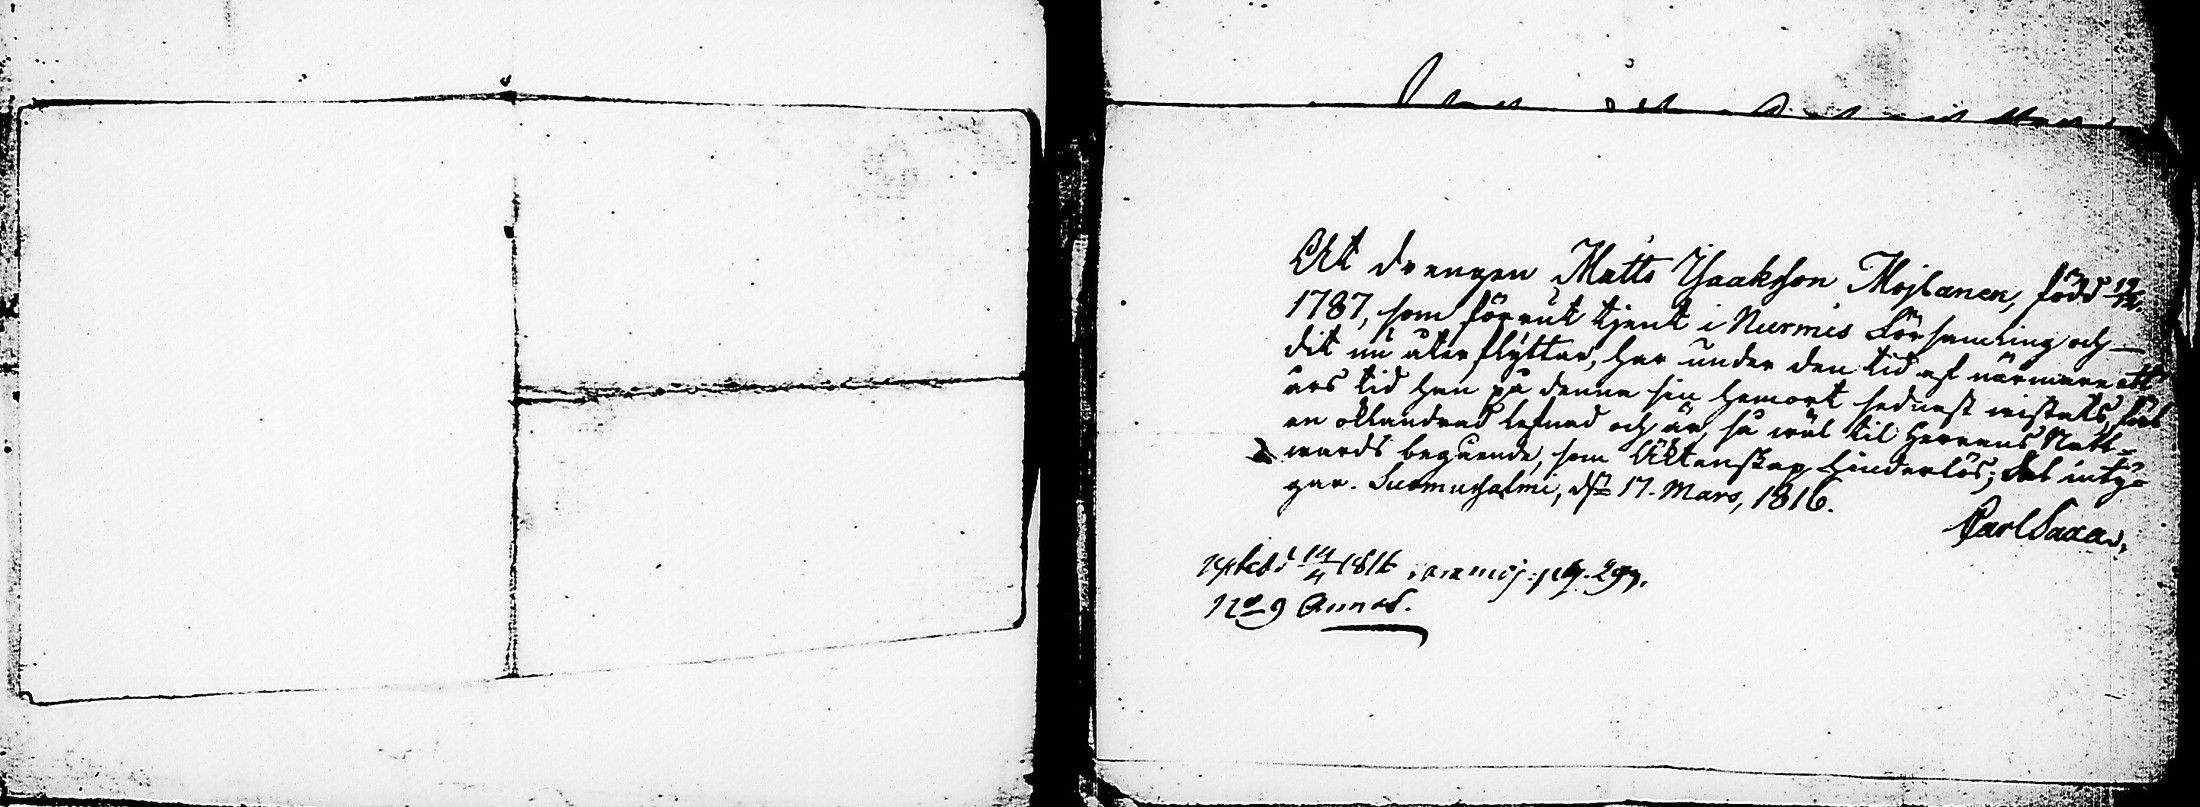 At drengen Matts Isaaksson Mojlanen, född 12/12.
1787, som förrut tjent i Nurmis Församling och
dit nu återflyttar, har under den tid af närmare ett
års tid han på denna sin hemort sednast vistats, fört
en oklandrad lefnad och är, så wäl til Herrens Natt-
wards begående, som Äktenskap hinderlös; Det inty-
gar. Suomusalmi, d. 17. Mars, 1816.
Carl Saxa
14/4 1816 pag. 297.
No 9 Annot.